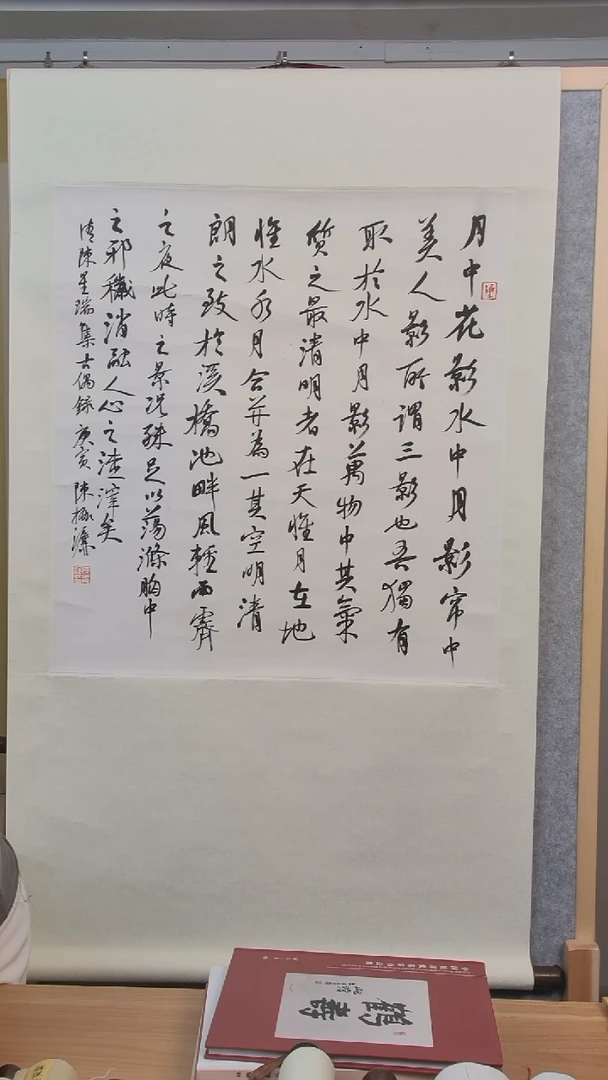 月中花影水中月影帘中
美人影所謂三影也吾獨有
取於水中月影萬物中其氣
質之最清明者在天惟月在地
惟水水月合并為一其空明清
朗之致於溪橋池畔風輕雨霽
之夜此時之景況殊足以蕩滌胸中
之邪穢消融人心之渣滓矣
清陳星瑞集古偶錄庚寅陳
鶴壽